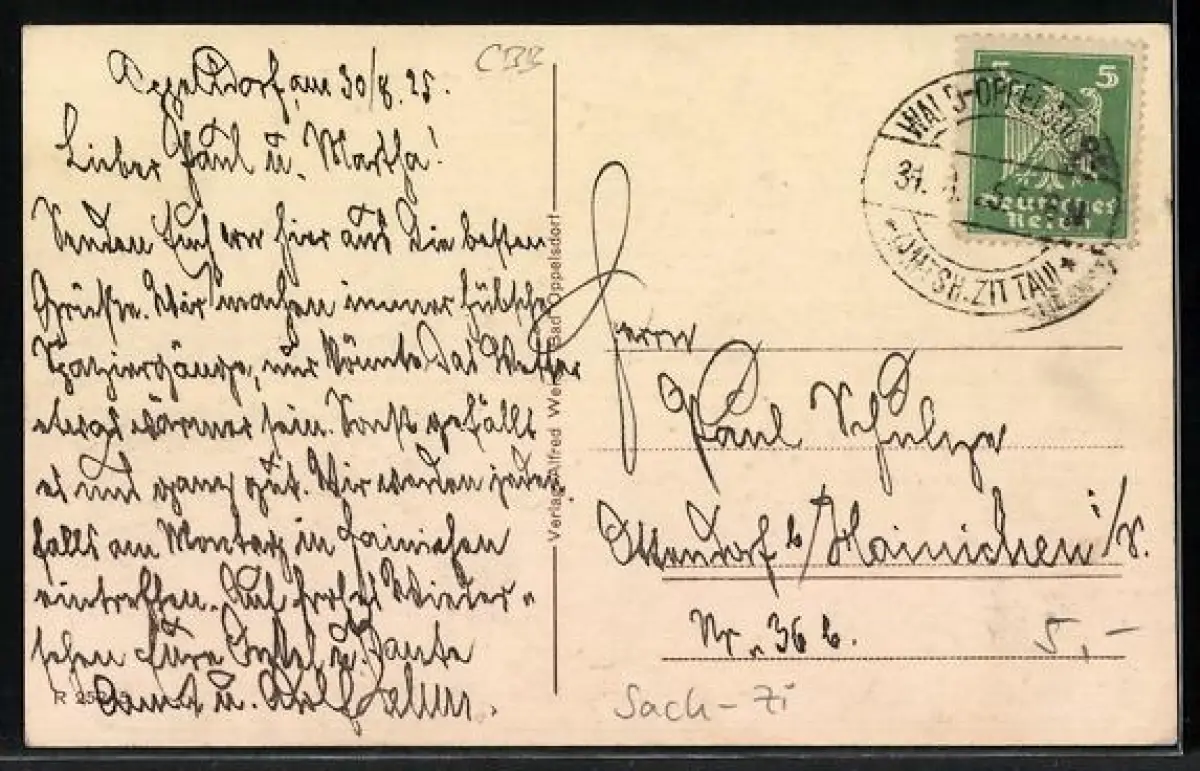 Oppelsdorf, am 30/8. 25.
Lieber Paul u. Martha!
Senden Euch von hier aus die besten
Grüße. Wir machen immer hübsche
Spaziergänge, nur könnte das Wetter
etwas wärmer sein. Sonst gefällt
es uns ganz gut. Wir werden jeden-
falls am Montag in Hainichen
eintreffen. Auf frohes Wieder-
sehen Eure Onkel u. Tante
u.
CBB
Verlag Alfred Bad Oppelsdorf
5 5
Deutsches
Reich
WALD-OPPELSDORF
31. 25.
(AMTSH. ZITTAU)
Herrn
Paul Schulze
Ottendorf b/Hainichen i/S.
Nr. 36 b.
5,-
Sach-Zi